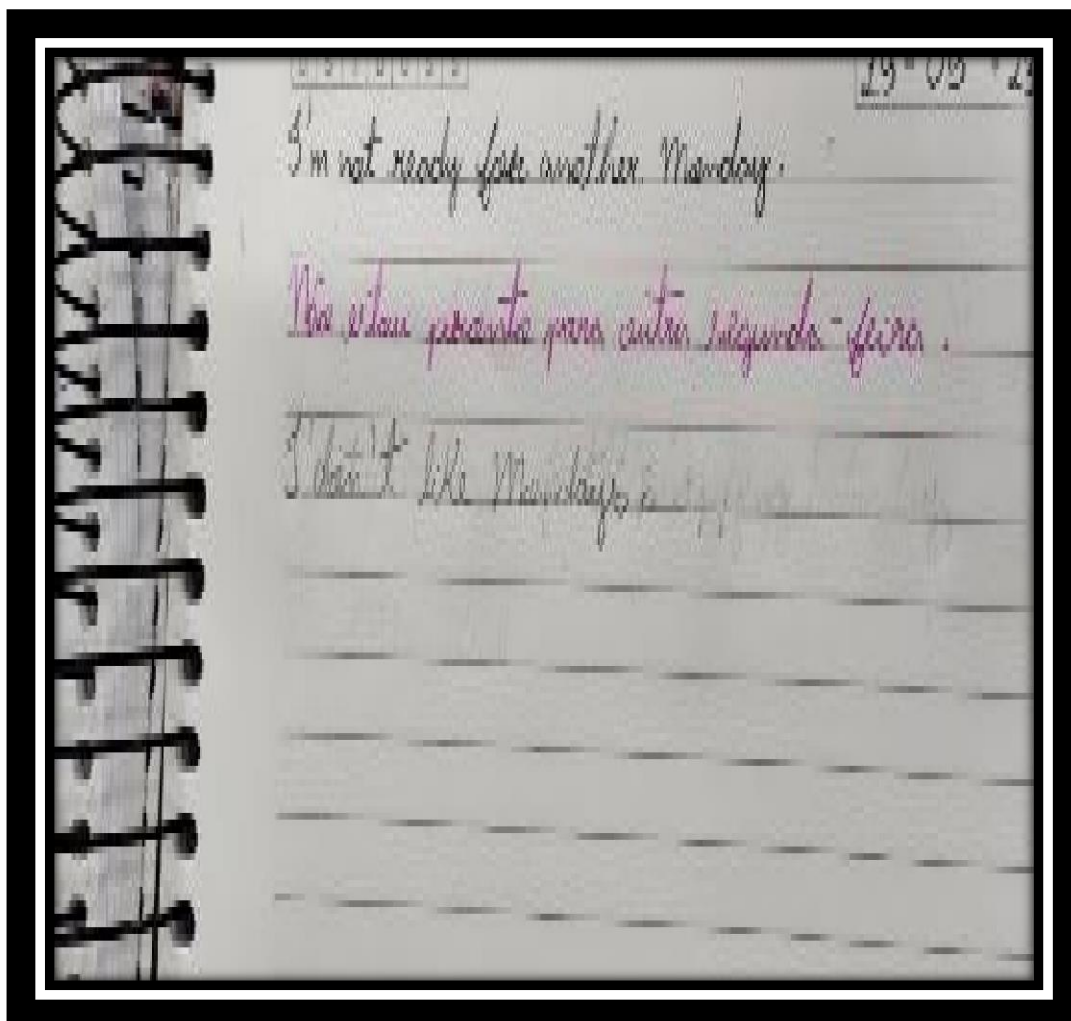 I'm not ready for another Monday.
Não estou pronta para outra segunda-feira.
I don't like Mondays